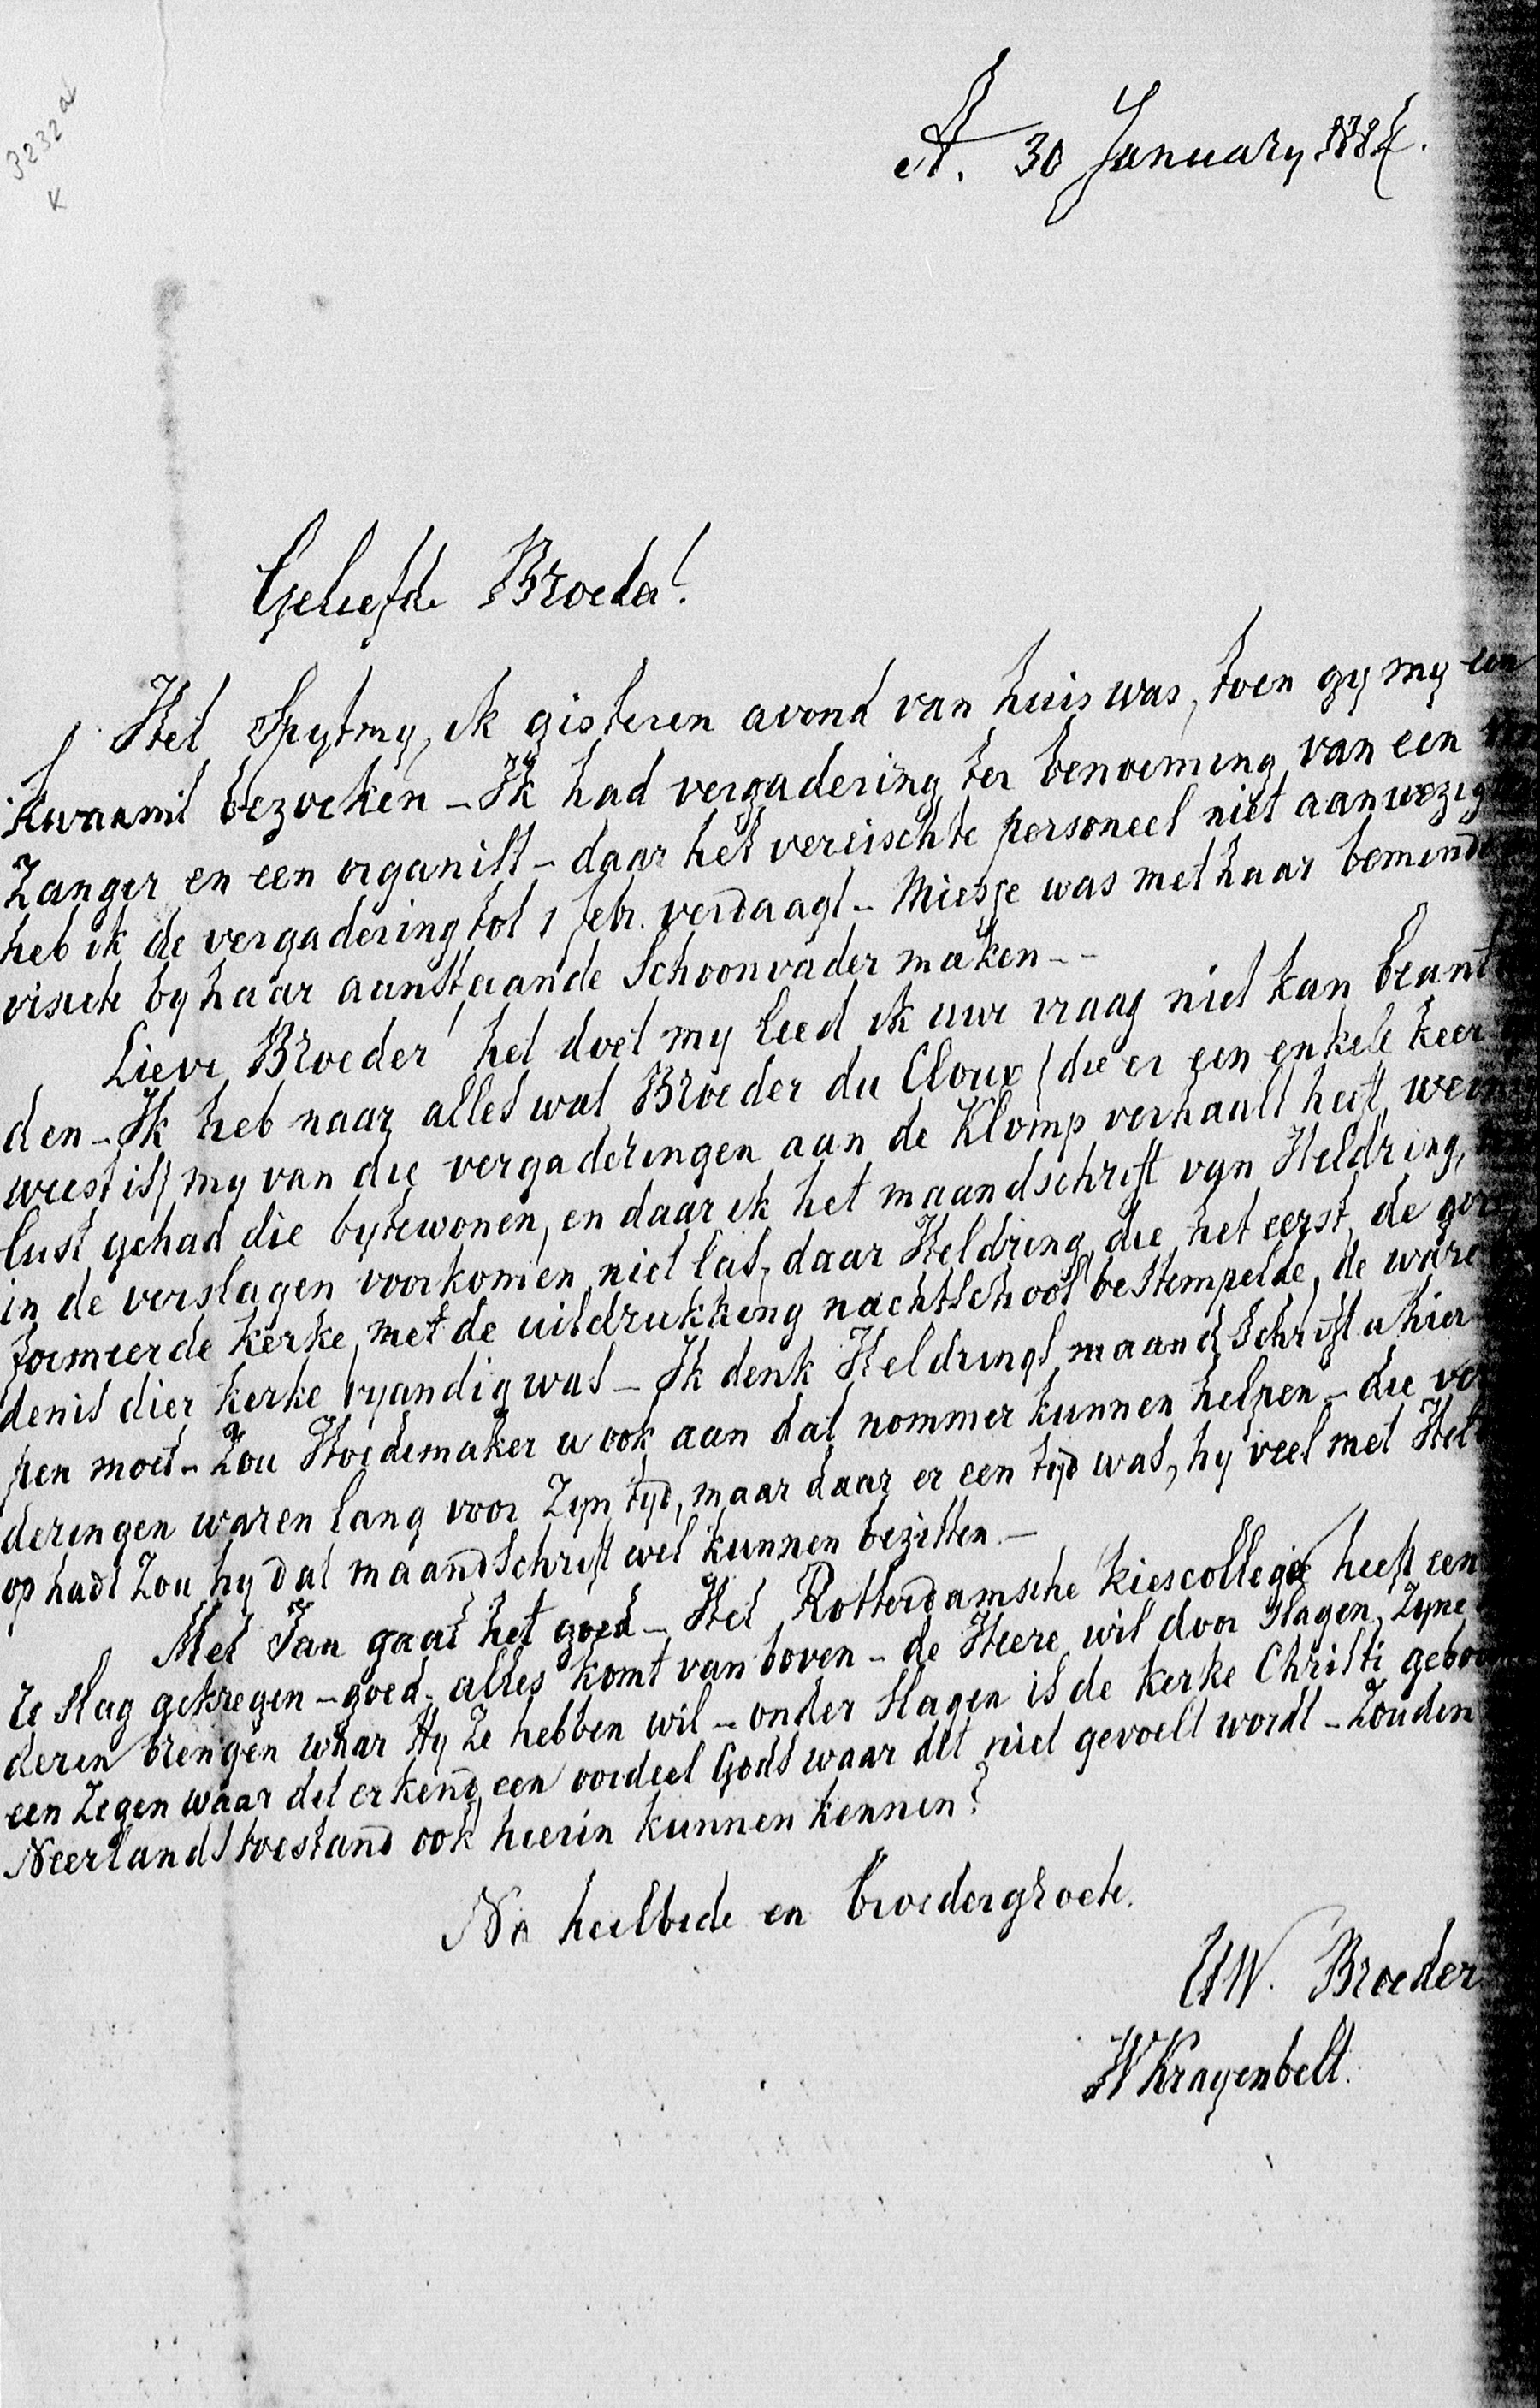 3232a
K
A. 30 January 1884.
Geliefde Broeder!
Het Spyt my, ik gisteren avond van huis was, toen gy my
kwaamt bezoeken - Ik had vergadering ter benoeming van een
Zanger en een organist - daar het vereischte personeel niet aanwezig
heb ik de vergadering tot 1 febr. verdaagt - Miesje was met haar beminde
visite by haar aanstaande Schoonvader maken - -
Lieve Broeder het doet my leed ik uwe vraag niet kan beant
den - Ik heb naar alles wat Broeder du Cloux (die er een enkele keer
weest is) my van die vergaderingen aan de Klomp verhaalt heeft wein
lust gehad die bytewonen, en daar ik het maandschrift van Heldring,
in de verslagen voorkomen niet las, daar Heldring, die het eerst de
formeerde kerke, met de uitdrukking nachtschool bestempelde, de ware
denis dier kerke vyandig was - Ik denk Heldrings maandschrift u hier
pen moet - Zou Hoedemaker u ook aan dat nommer kunnen helpen - die ver
deringen waren lang voor Zyn tyd, maar daar er een tyd was, hy veel met Hel
op hadt Zou hy dat maandschrift wel kunnen bezitten. -
Met Jan gaat het goed - Het Rotterdamsche kiescollegie heeft een
ze slag gekregen - goed - alles komt van boven - de Heere wil door slagen Zyne
deren brengen waar Hy Ze hebben wil - onder slagen is de kerke Christi geboren
een Zegen waar dit erkend, een oordeel Gods waar dit niet gevoelt wordt - Zouden
Neerlands toestand ook hierin kunnen kennen?
Na heilbede en broedergroete.
UW. Broeder
W Kragenbelt.